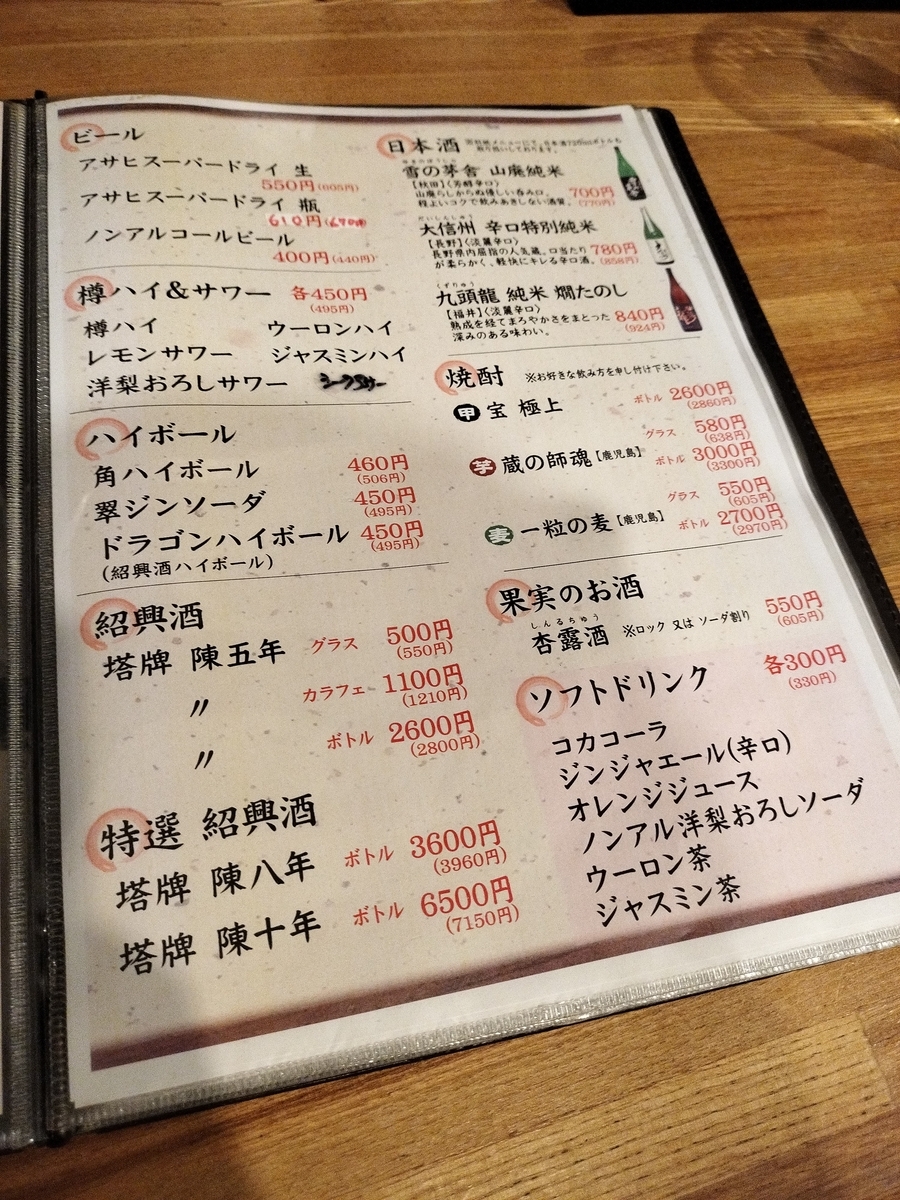 ビール
アサヒスーパードライ 生
550円(605円)
アサヒスーパードライ 瓶
610円
ノンアルコールビール
400円(440円)
樽ハイ&サワー 各450円
(495円)
樽ハイ ウーロンハイ
レモンサワー ジャスミンハイ
洋梨おろしサワー
ハイボール
角ハイボール 460円
(506円)
翠ジンソーダ 450円
(495円)
ドラゴンハイボール 450円
(紹興酒ハイボール) (495円)
紹興酒
塔牌 陳五年 グラス 500円
(550円)
〃 カラフェ 1100円
(1210円)
〃 ボトル 2600円
(2800円)
特選 紹興酒
塔牌 陳八年 ボトル 3600円
(3960円)
塔牌 陳十年 ボトル 6500円
(7150円)
日本酒
取り扱いしております。
雪の茅舎 山廃純米
【秋田】〈芳醇辛口〉
山廃らしからぬ優しい呑み口。 700円
程よいコクで飲みあきしない酒質。 (770円)
だいしんしゅう
大信州 辛口特別純米
【長野】〈淡麗辛口〉
長野県内屈指の人気蔵。口当たり 780円
が柔らかく、軽快にキレる辛口酒。 (858円)
くずりゅう
九頭龍 純米 燗たのし
【福井】〈淡麗辛口〉
熟成を経てまろやかさをまとった 840円
深みのある味わい。 (924円)
焼酎 ※お好きな飲み方を申し付け下さい。
甲 宝 極上 ボトル 2600円
(2860円)
グラス 580円
(638円)
芋 蔵の師魂【鹿児島】 ボトル 3000円
(3300円)
グラス 550円
(605円)
麦 一粒の麦【鹿児島】 ボトル 2700円
(2970円)
果実のお酒
しんるちゅう
杏露酒 ※ロック 又は ソーダ割り 550円
(605円)
ソフトドリンク 各300円
(330円)
コカコーラ
ジンジャエール(辛口)
オレンジジュース
ノンアル洋梨おろしソーダ
ウーロン茶
ジャスミン茶